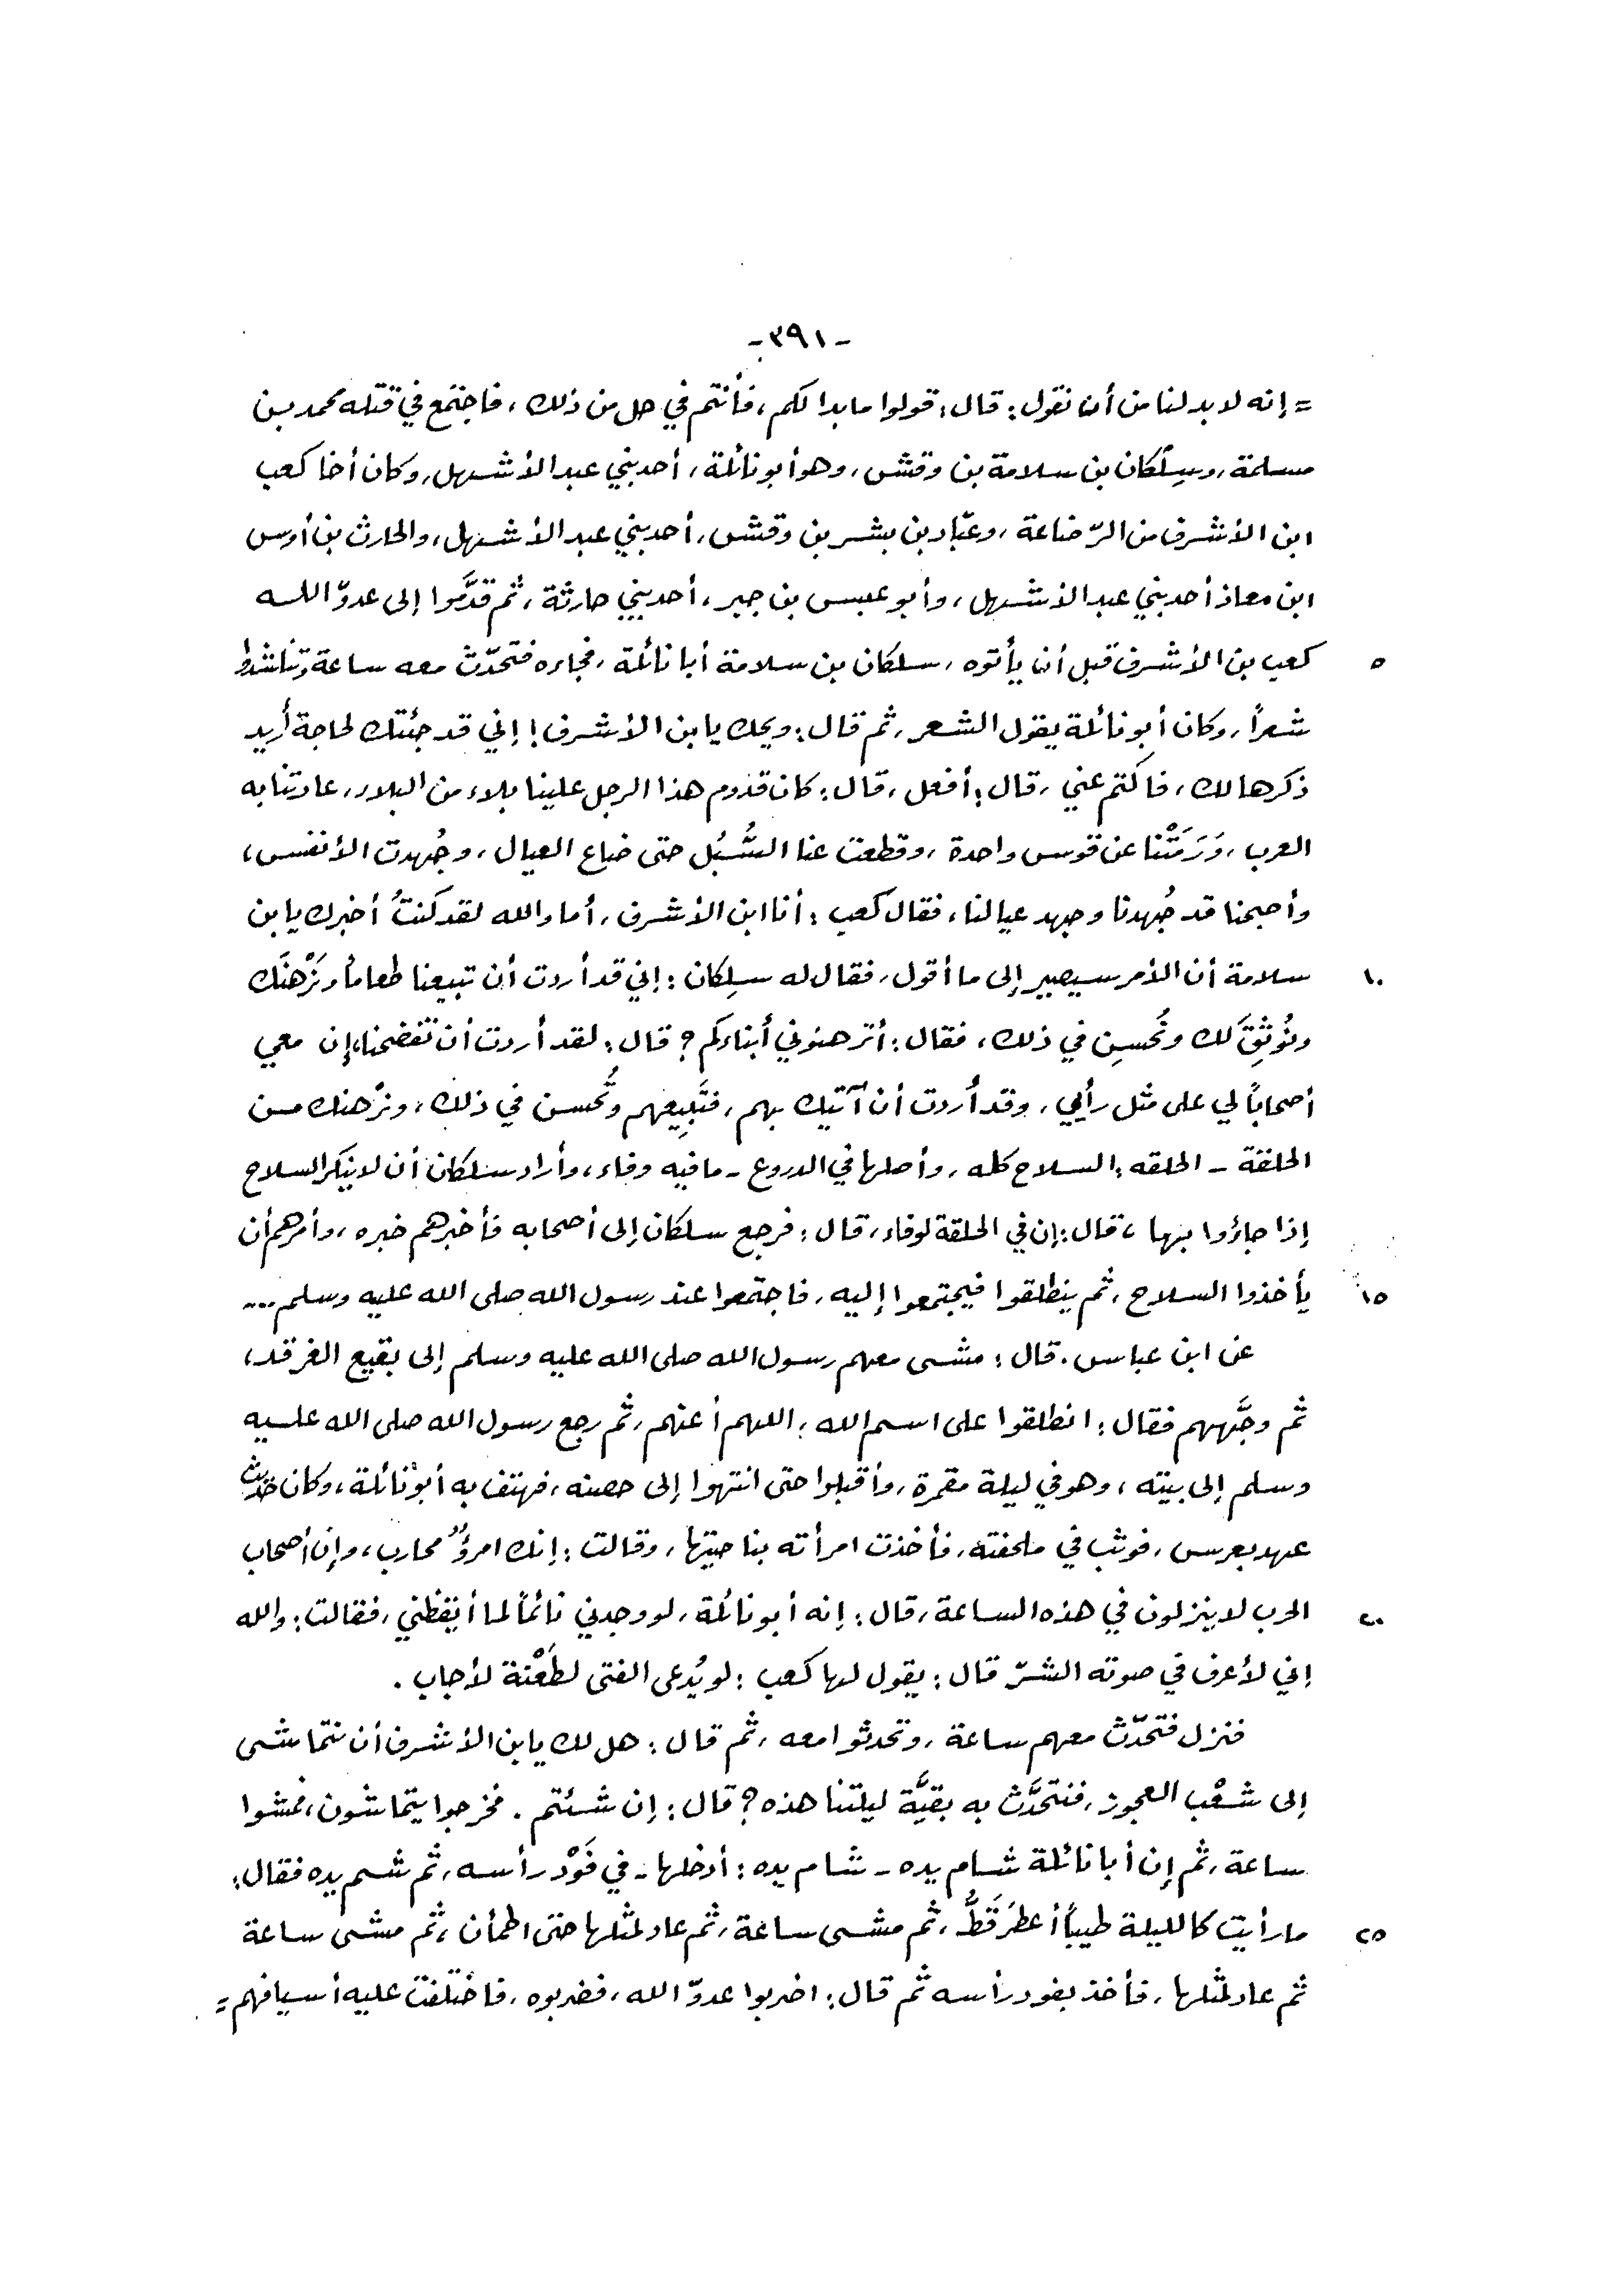 -٣٩١-
= إنه لا بد لنا من أن نقول: قال: قولوا ما بدا لكم، فأنتم في حل من ذلك، فاجتمع في قتله محمد بن
مسلمة، وسِلْكان بن سلامة بن وقش، وهو أبو نائلة، أحد بني عبد الأشهل، وكان أخا كعب
ابن الأشرف من الرّضاعة، وعبّاد بن بشر بن وقش، أحد بني عبد الأشهل، والحارث بن أوس
ابن معاذ أحد بني عبد الأشهل، وأبو عبس بن جبر، أحد بني حارثة، ثم قدَّموا إلى عدوّ الله
٥ كعب بن الأشرف قبل أن يأتوه، سلكان بن سلامة أبا نائلة، فجاءه فتحدّث معه ساعة وتناشدوا
شعراً، وكان أبو نائلة يقول الشعر، ثم قال: ويحك يا بن الأشرف! إني قد جئتك لحاجة أريد
ذكرها لك، فاكتم عني، قال: أفعل، قال: كان قدوم هذا الرجل علينا بلاء من البلاء، عادتنا به
العرب، وَرَمَتْنا عن قوس واحدة، وقطعت عنا السُّبُل حتى ضاع العيال، وجُهدت الأنفس،
وأصبحنا قد جُهدنا وجهد عيالنا، فقال كعب: أنا ابن الأشرف، أما والله لقد كنتُ أخبرك يا بن
١٠ سلامة أن الأمر سيصير إلى ما أقول، فقال له سِلكان: إني قد أردت أن تبيعنا طعاماً ونَرْهنَك
ونُوثِقَ لك ونُحسِن في ذلك، فقال: أترهنوني أبناءكم؟ قال: لقد أردت أن تفضحنا، إن معي
أصحاباً لي على مثل رأيي، وقد أردت أن آتيك بهم، فتَبِيعهم وتُحسن في ذلك، ونرْهنك من
الحلقة - الحلقه: السلاح كله، وأصلها في الدروع - ما فيه وفاء، وأراد سلكان أن لا ينكر السلاح
إذا جاؤوا بها، قال: إن في الحلقة لوفاء، قال: فرجع سلكان إلى أصحابه فأخبرهم خبره، وأمرهم أن
١٥ يأخذوا السلاح، ثم ينطلقوا فيجتمعوا إليه، فاجتمعوا عند رسول الله صلى الله عليه وسلم...
عن ابن عباس. قال: مشى معهم رسول الله صلى الله عليه وسلم إلى بقيع الغرقد،
ثم وجَّههم فقال: انطلقوا على اسم الله: اللهم أعنهم، ثم رجع رسول الله صلى الله عليه
وسلم إلى بيته، وهو في ليلة مقمرة، وأقبلوا حتى انتهوا إلى حصنه، فهتف به أبو نائلة، وكان حديث
عهد بعرس، فوثب في ملحفته، فأخذت امرأته بناحيتها، وقالت: إنك امرؤٌ محارب، وإن أصحاب
٢٠ الحرب لا ينزلون في هذه الساعة، قال: إنه أبو نائلة، لو وجدني نائماً لما أيقظني، فقالت: والله
إني لأعرف في صوته الشرّ قال: يقول لها كعب: لو يُدعى الفتى لطَعْنة لأجاب.
فنزل فتحدّث معهم ساعة، وتحدثوا معه، ثم قال: هل لك يا بن الأشرف أن نتماشى
إلى شعْب العجوز، فنتحدَّث به بقيَّة ليلتنا هذه؟ قال: إن شئتم. فخرجوا يتماشون، فمشوا
ساعة، ثم إن أبا نائلة شام يده - شام يده: أدخلها - في فَوْد رأسه، ثم شم يده فقال:
٢٥ ما رأيت كالليلة طيباً أعطرَ قَطُّ، ثم مشى ساعة، ثم عاد لمثلها حتى اطمأن، ثم مشى ساعة
ثم عاد لمثلها، فأخذ بفود رأسه ثم قال: اضربوا عدوّ الله، فضربوه، فاختلفت عليه أسيافهم =